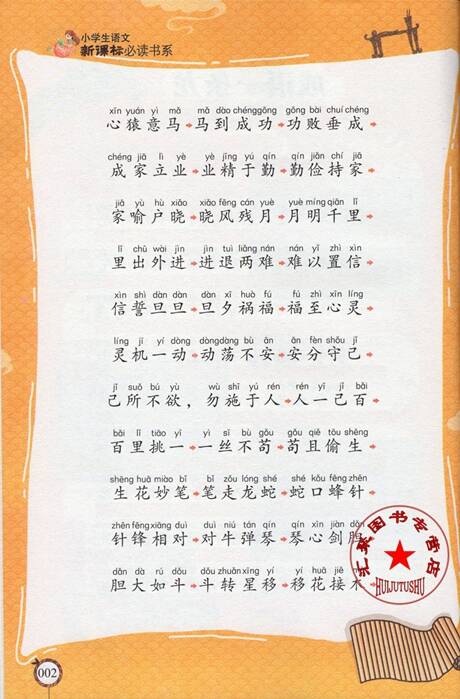 小学生语文
新课标必读书系
xīn yuán yì mǎ mǎ dào chénggōng gōng bài chuí chéng
心猿意马→马到成功→功败垂成→
chéng jiā lì yè yè jīng yú qín qín jiǎn chí jiā
成家立业→业精于勤→勤俭持家→
jiā yù hù xiǎo xiǎo fēng cán yuè yuè míng qiān lǐ
家喻户晓→晓风残月→月明千里→
lǐ chū wài jìn jìn tuì liǎng nán nán yǐ zhì xìn
里出外进→进退两难→难以置信→
xìn shì dàn dàn dàn xī huò fú fú zhì xīn líng
信誓旦旦→旦夕祸福→福至心灵→
líng jī yí dòng dòngdàng bù ān ān fèn shǒu jǐ
灵机一动→动荡不安→安分守己→
jǐ suǒ bú yù wù shī yú rén rén yī jǐ bǎi
己所不欲，勿施于人→人一己百→
bǎi lǐ tiāo yī yì sī bù gǒu gǒu qiě tōu shēng
百里挑一→一丝不苟→苟且偷生→
shēng huā miào bǐ bǐ zǒu lóng shé shé kǒu fēng zhēn
生花妙笔→笔走龙蛇→蛇口蜂针→
zhēn fēng xiāng duì duì niú tán qín qín xīn jiàn dǎn
针锋相对→对牛弹琴→琴心剑胆→
dǎn dà rú dǒu dǒu zhuǎn xīng yí yí huā jiē mù
胆大如斗→斗转星移→移花接木→
汇聚图书专营店
HUIJUTUSHU
002